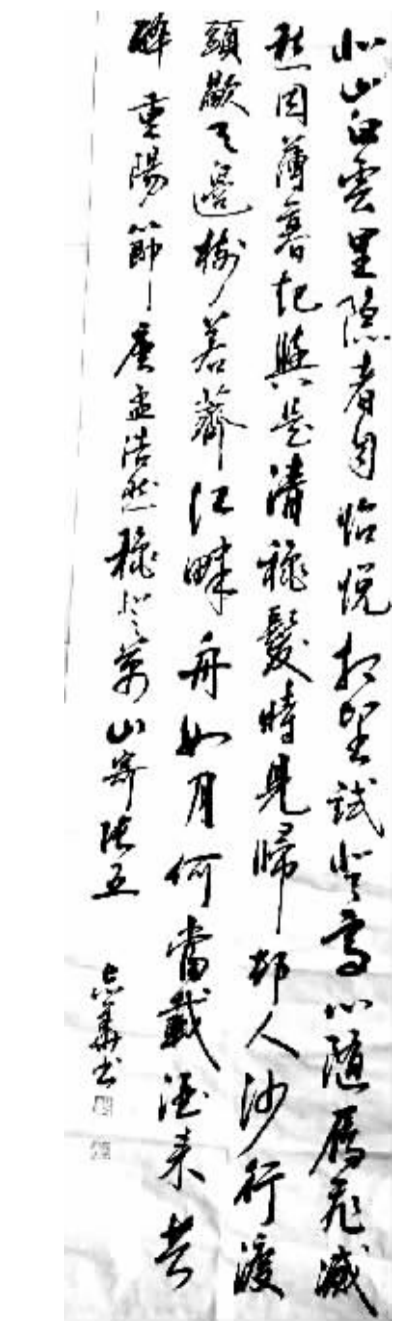 北山白雲里隐者自怡悅相望試登高心隨雁飛滅
愁因薄暮起興是清秋髮時見歸邨人沙行渡
頭歇天邊樹若薺江畔舟如月何當載酒來共
醉重陽節 唐孟浩然秋登萬山寄張五 志華书